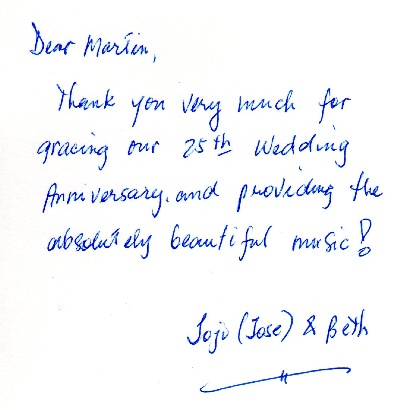 Dear Martin,
Thank you very much for
gracing our 25th Wedding
Anniversary. and providing the
absolutely beautiful music!
Jojo (Jose) & Beth